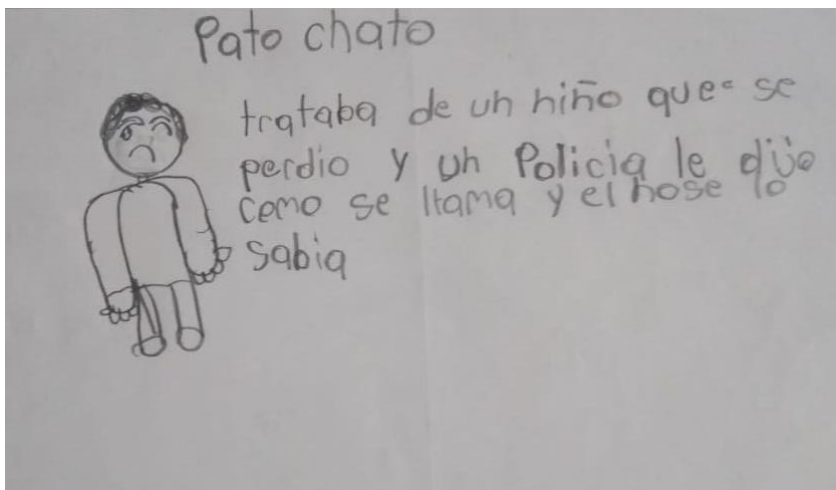 Pato chato
trataba de un niño que se
perdio y un Policia le dijo
como se llama y el nose lo
sabia